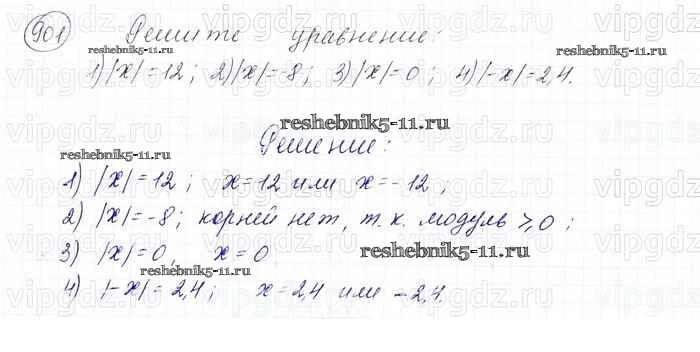 901 Решите уравнение:
reshebnik5-11.ru reshebnik5-11.ru
1) |x|=12; 2) |x|=-8; 3) |x|=0; 4) |-x|=2,4.
reshebnik5-11.ru
Решение:
reshebnik5-11.ru
1) |x|=12; x=12 или x=-12;
2) |x|=-8; корней нет, т.к. модуль ≥0;
3) |x|=0, x=0
reshebnik5-11.ru
reshebnik5-11.ru
4) |-x|=2,4; x=2,4 или -2,4.